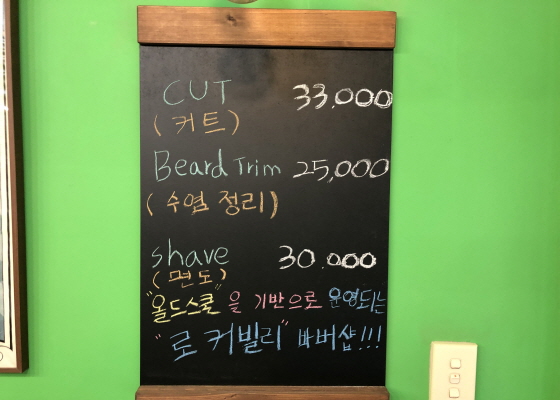 CUT 33,000
(커트)
Beard Trim 25,000
(수염 정리)
shave 30.000
(면도)
"올드스쿨"을 기반으로 운영되는
"로커빌리" 바버샵!!!